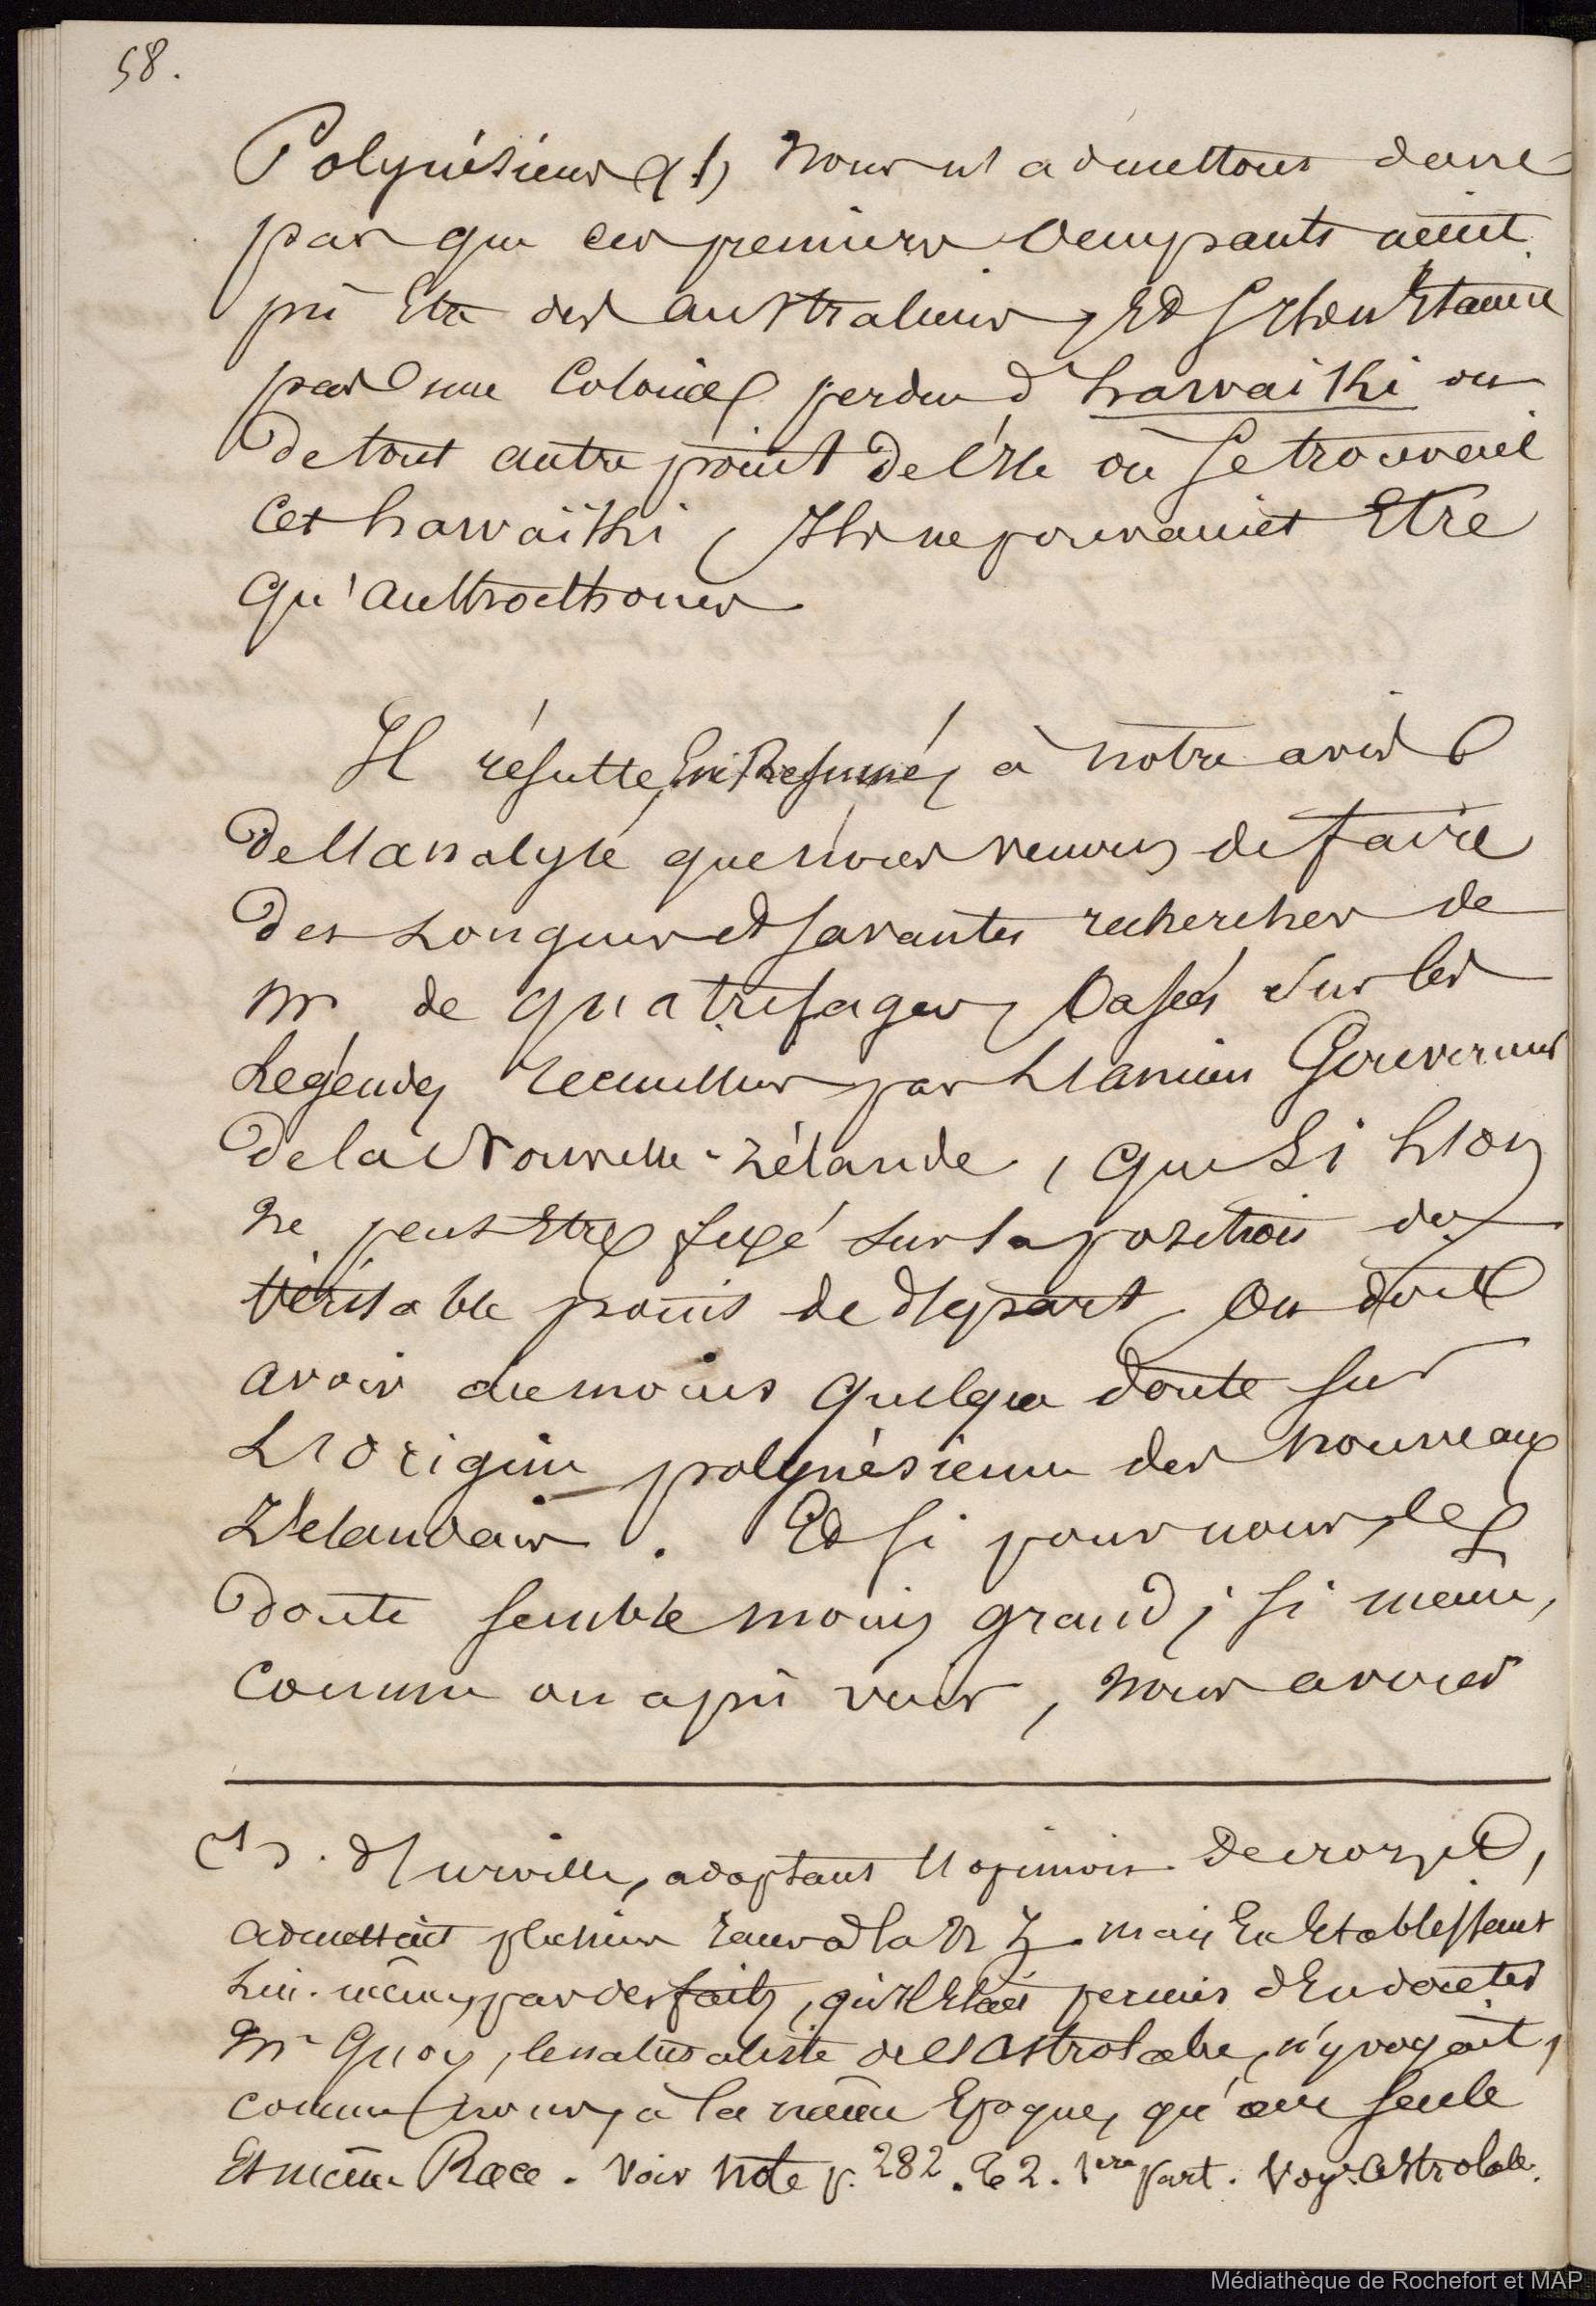 58.
Polynésiens (1) Nous n'admettons donc
pas que ces premiers occupants aient
pû Etre des Australiens, Et s'ils n'Etaient
pas une Colonie perdue d'hawaïki ou
de tout autre point de l'Ile où se trouvait
cet hawaïki, Ils ne pouvaient Etre
qu'aucthocthones.
Il résulte, En Résumé, à notre avis
de l'analyse que nous venons de faire
des longues et savantes recherches de
Mr de quatrefages, basées sur les
Légendes recueillies par L'ancien Gouverneur
de la Nouvelle-Zélande, que si L'on
ne peut Etre fixé sur la position du
véritable point de départ, on doit
avoir du moins quelque doute sur
L'origine polynésienne des nouveaux
Zélandais. Et si pour nous, le
doute semble moins grand ; si même,
comme on a pû voir, nous avons
(1). d'Urville, adoptant l'opinion de crozet,
admettait plusieurs races à la N Z. mais En Etablissant
lui-même, par des faits, qu'il Etait permis d'En douter
Mr Quoy, le naturaliste de l'astrolabe, n'y voyait,
comme nous, à la même Epoque, qu'une seule
Et même Race. Voir note p. 282. t. 2. 1ere part. Voy. astrolabe.
Médiathèque de Rochefort et MAP